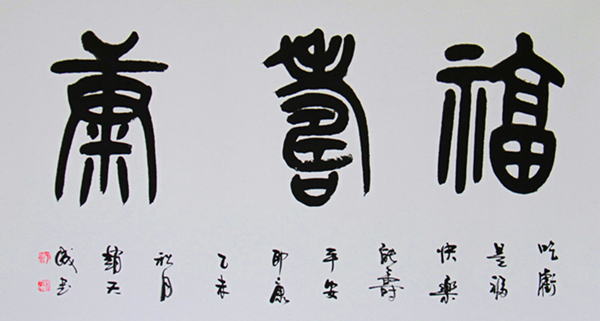 福壽康
吃虧
是福
快樂
能壽
平安
即康
乙未
秋月
趙天
書